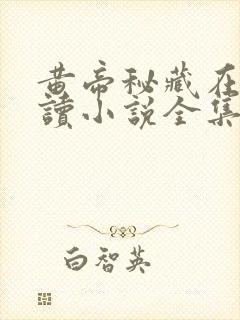 黄帝秘藏在
讀小說全集
白智英